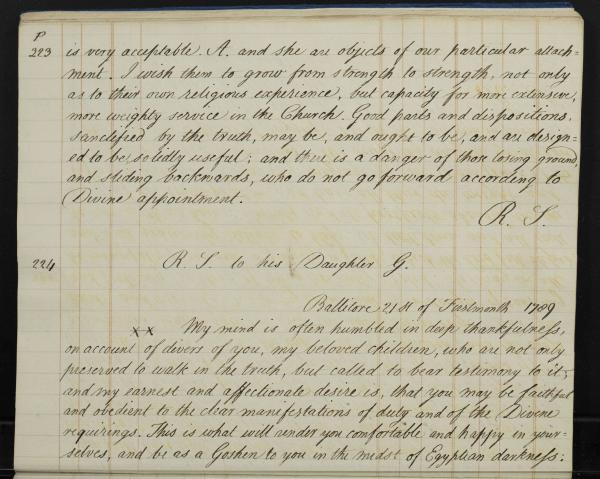 P
223 is very acceptable. A. and she are objects of our particular attach=
ment. I wish them to grow from strength to strength, not only
as to their own religious experience, but capacity for more extensive,
more weighty service in the Church. Good parts and dispositions,
sanctified by the truth, may be, and ought to be, and are design-
ed to be, solidly useful; and there is a danger of those losing ground,
and sliding backwards, who do not go forward according to
Divine appointment.
R. S.
224 R. S. to his Daughter G.
Ballitore 21st of Firstmonth 1789
xx My mind is often humbled in deep thankfulness,
on account of divers of you, my beloved children, who are not only
preserved to walk in the truth, but called to bear testimony to it;
and my earnest and affectionate desire is, that you may be faithful
and obedient to the clear manifestations of duty and of the Divine
requirings. This is what will render you comfortable and happy in your=
selves, and be as a Goshen to you in the midst of Egyptian darkness: